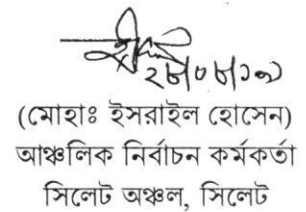 ২৮/০৮/১৯
(মোহাঃ ইসরাইল হোসেন)
আঞ্চলিক নির্বাচন কর্মকর্তা
সিলেট অঞ্চল, সিলেট